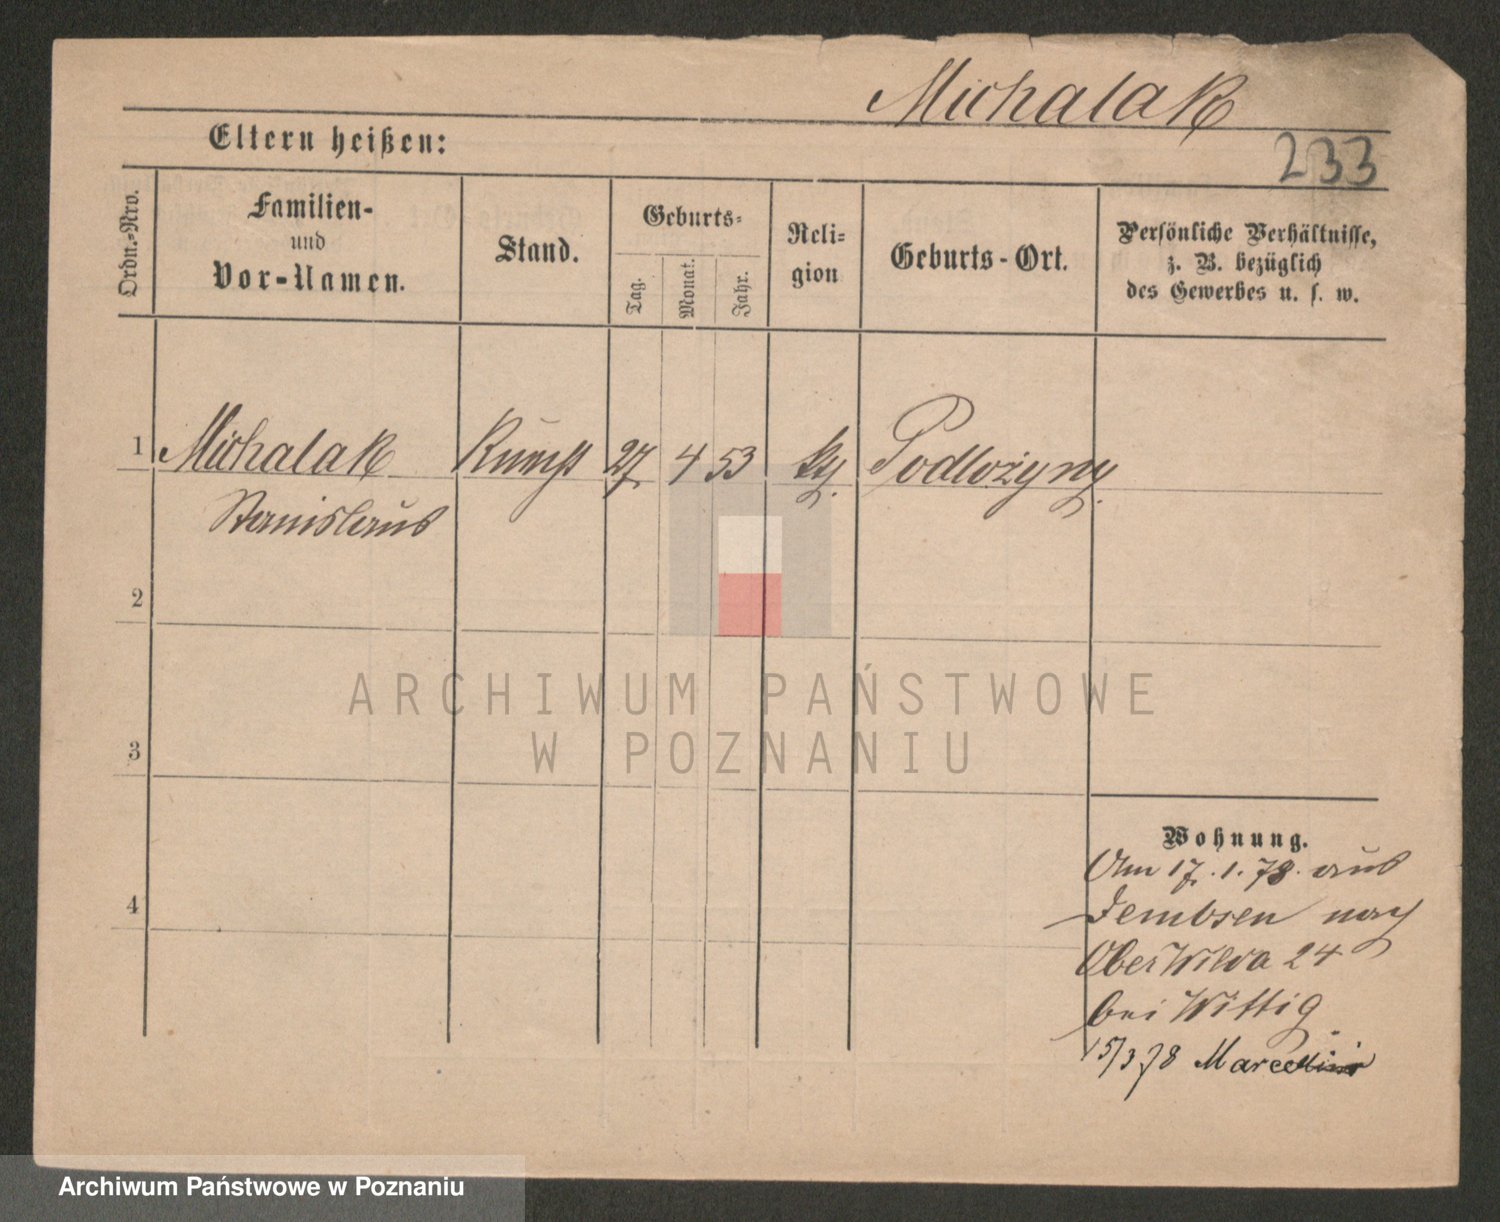 Michalak
233
Eltern heißen:
Ordn.-Nro.
Familien-
und
Vor-Namen.
Stand.
Geburts-
Tag.
Monat.
Jahr.
Reli-
gion
Geburts-Ort.
Persönliche Verhältnisse,
z. B. bezüglich
des Gewerbes u. s. w.
1 Michalak Knecht 27 4 53 Podlożyny
Stanislaus
2
3
4
Wohnung.
Am 17.1.78. aus
Dembsen nach
Ober Wilda 24
bei Wittig
15/3 78
ARCHIWUM PAŃSTWOWE
W POZNANIU
Archiwum Państwowe w Poznaniu